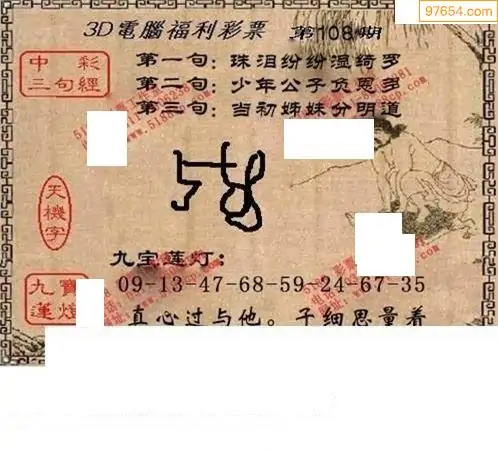 97654.com
3D電腦福利彩票 第108期
中彩
三句經
第一句：珠泪纷纷湿绮罗
第二句：少年公子负恩多
第三句：当初姊妹分明道
天機字
九宝莲灯：
九寶蓮燈
09-13-47-68-59-24-67-35
真心过与他。子细思量着